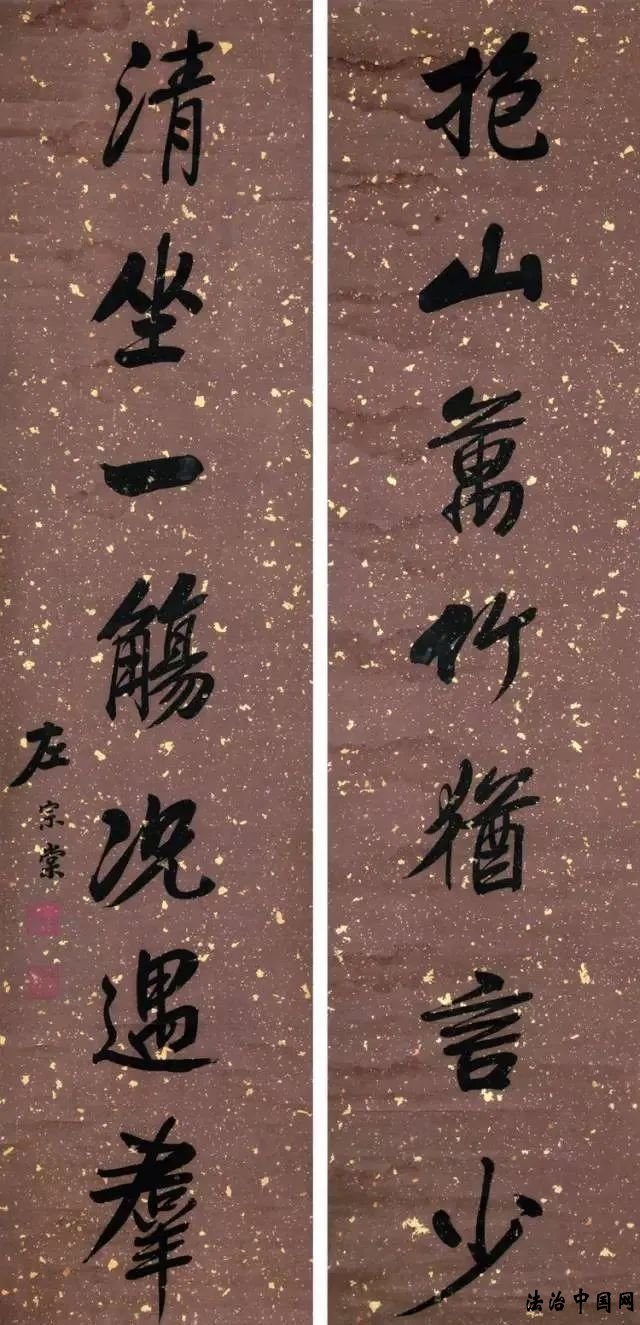 抱山萬竹猶言少
清坐一觴况遇羣
左宗棠
法治中国网